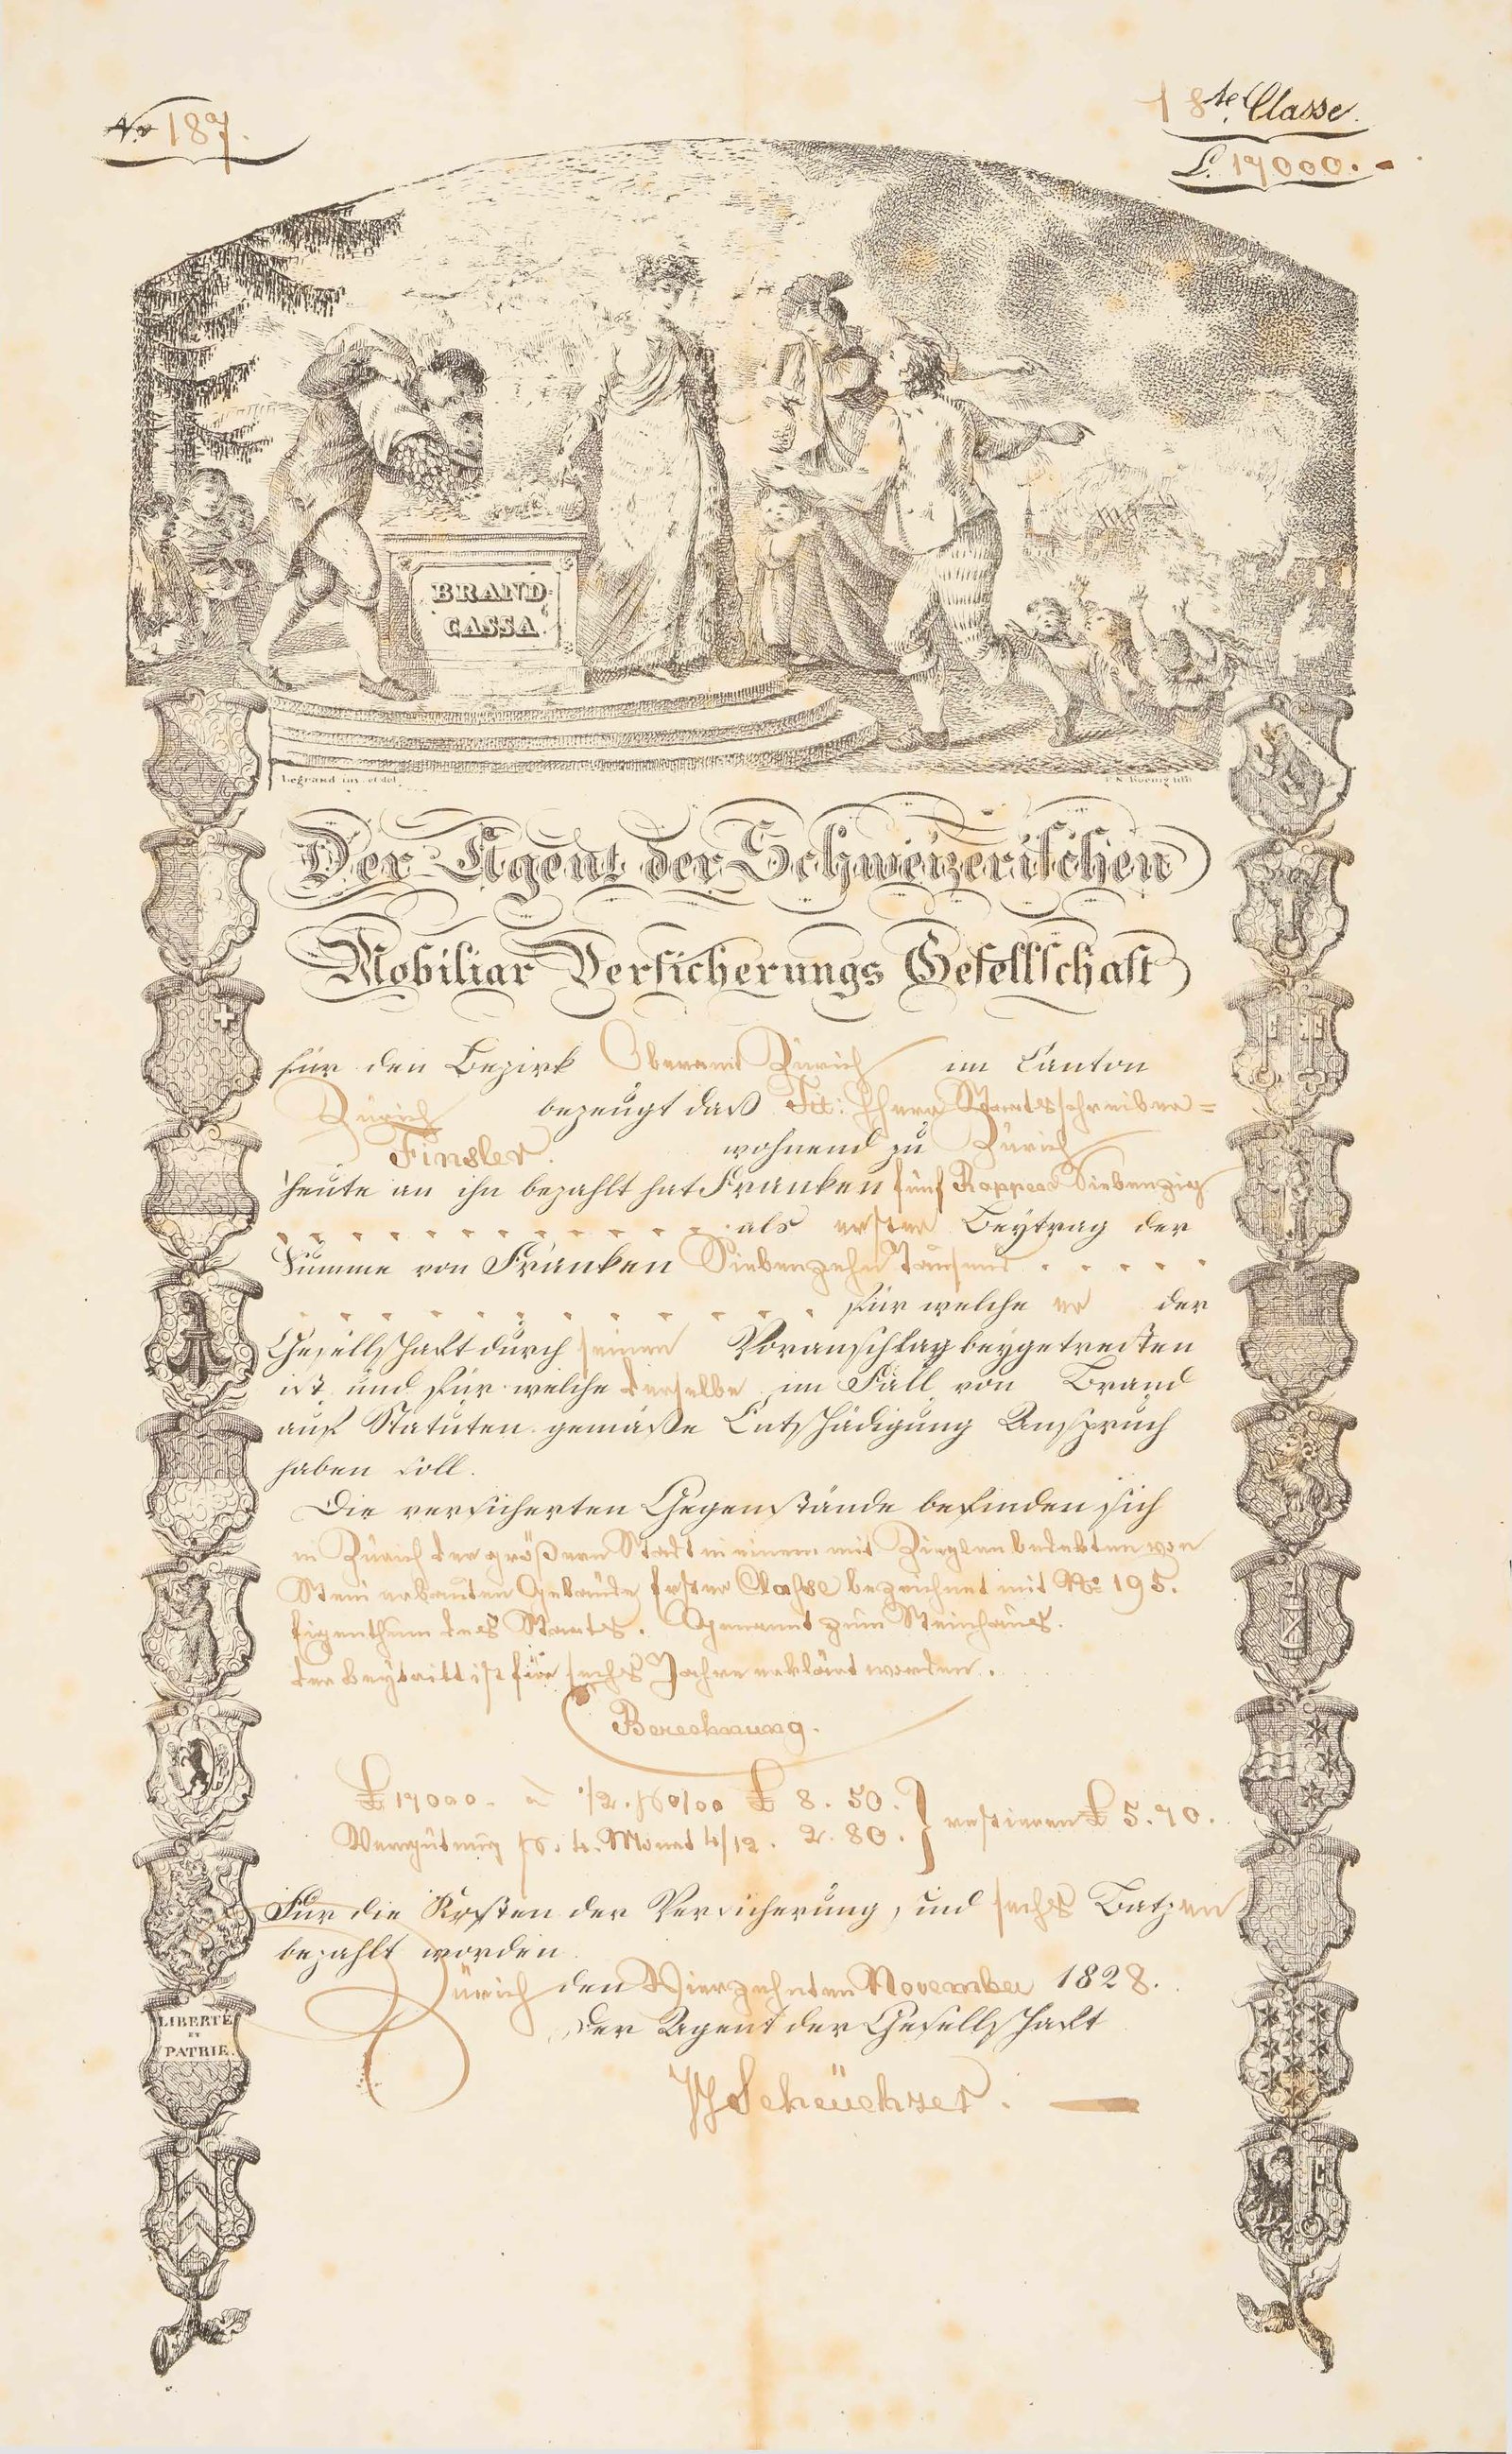 No 187.
1 8te Classe.
L. 17000.-
BRAND
CASSA
Legrand inv. et del.
F. N. Koenig lith
Der Agent der Schweizerischen
Mobiliar Versicherungs Gesellschaft
für den Bezirk Oberamt Zürich im Canton
Zürich bezeugt daß Tit: Herr Staatsschreiber =
Finsler. wohnend zu Zürich
heute an ihn bezahlt hat Franken fünf Rappen Siebenzig
als erster Beytrag der
Summe von Franken Siebenzehn Tausend . . . . .
für welche er der
Gesellschaft durch seinen Voranschlag beygetretten
ist und für welche derselbe im Fall von Brand
auf Statuten gemäße Entschädigung Anspruch
haben soll.
Die versicherten Gegenstände befinden sich
in Zürich der größern Stadt in einem mit Zieglen bedekten von
Stein erbauten Gebäude erster Classe bezeichnet mit No 195.
Eigenthum des Staates. Genannt zum Steinhaus.
der Beytritt ist für sechs Jahre erklärt worden.
Berechnung.
£ 17000.- à 1/2. pr 0/00 £ 8. 50. } restieren £ 5. 70.
Vergütung pr. 4. Monat 4/12. 2. 80.
Für die Kosten der Versicherung, sind sechs Batzen
bezahlt worden.
Zürich den Vierzehnten November 1828.
Der Agent der Gesellschaft
Scheüchzer.
LIBERTÉ
ET
PATRIE.